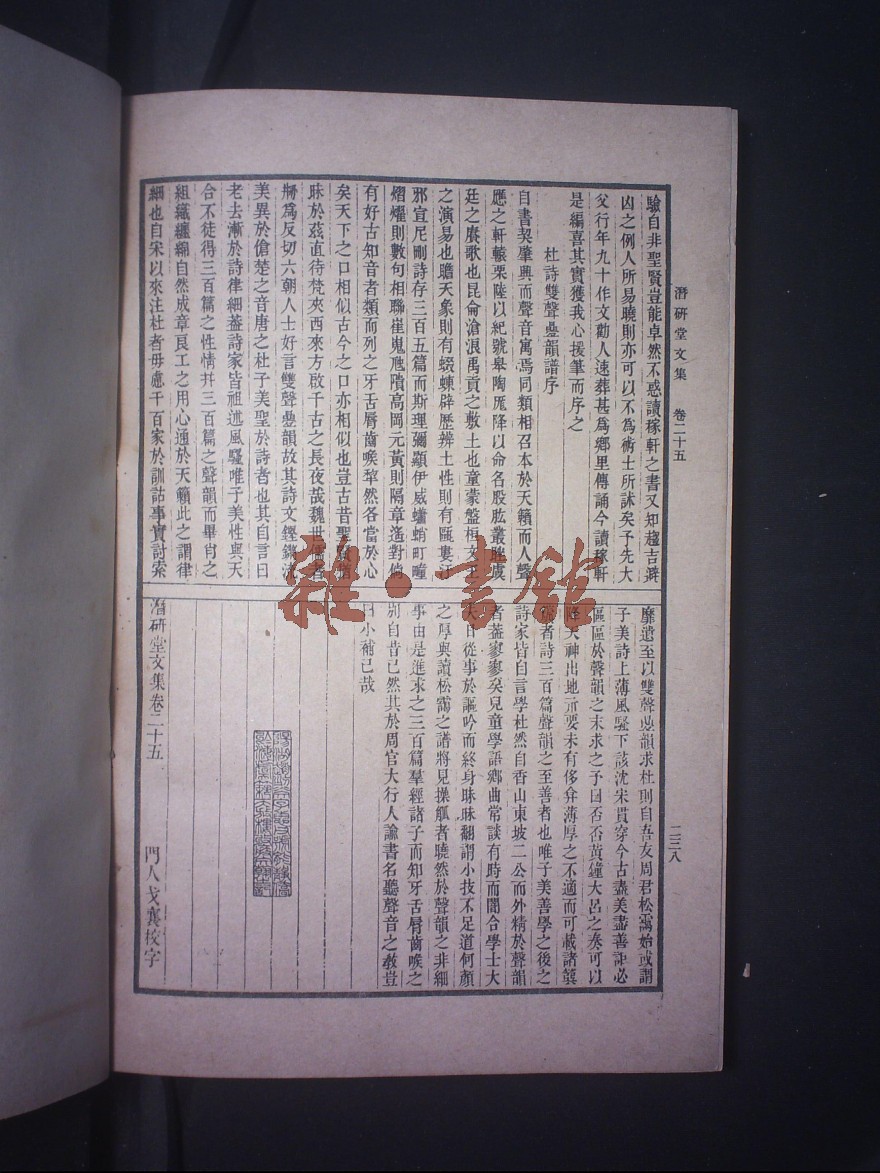 潛研堂文集 卷二十五
二三八
驗自非聖賢豈能卓然不惑讀稼軒之書又知趨吉避
凶之例人所易曉則亦可以不為術士所訹矣予先大
父行年九十作文勸人速葬甚為鄉里傳誦今讀稼軒
是編喜其實獲我心援筆而序之
杜詩雙聲疊韻譜序
自書契肇興而聲音寓焉同類相召本於天籟而人聲
應之軒轅栗陸以紀號皋陶厖降以命名股肱叢脞虞
廷之賡歌也昆侖滄浪禹貢之敷土也童蒙盤桓文王
之演易也瞻天象則有蝃蝀辟歷辨土性則有甌婁汙
邪宣尼刪詩存三百五篇而斯理彌顯伊威蠨蛸町疃
熠燿則數句相聯崔嵬虺隤高岡元黃則隔章遙對倘
有好古知音者類而列之牙舌脣齒喉犂然各當於心
矣天下之口相似古今之口亦相似也豈古昔聖賢猶
昧於茲直待梵夾西來方啟千古之長夜哉魏世儒者
剏為反切六朝人士好言雙聲疊韻故其詩文鏗鏘流
美異於傖楚之音唐之杜子美聖於詩者也其自言曰
老去漸於詩律細蓋詩家皆祖述風騷唯子美性與天
合不徒得三百篇之性情并三百篇之聲韻而畢肖之
組織纏緜自然成章良工之用心通於天籟此之謂律
細也自宋以來注杜者毋慮千百家於訓詁事實討索
靡遺至以雙聲疊韻求杜則自吾友周君松靄始或謂
子美詩上薄風騷下該沈宋貫穿今古盡美盡善詎必
區區於聲韻之末求之予曰否否黃鐘大呂之奏可以
降天神出地示要未有侈弇薄厚之不適而可載諸簨
簴者詩三百篇聲韻之至善者也唯子美善學之後之
詩家皆自言學杜然自香山東坡二公而外精於聲韻
者蓋寥寥矣兒童學語鄉曲常談有時而闇合學士大
夫日從事於謳吟而終身昧昧翻謂小技不足道何顏
之厚與讀松靄之譜將見操觚者曉然於聲韻之非細
事由是進求之三百篇羣經諸子而知牙舌脣齒喉之
別自昔已然其於周官大行人諭書名聽聲音之教豈
曰小補已哉
潛研堂文集卷二十五
門人戈襄校字
雜·書館